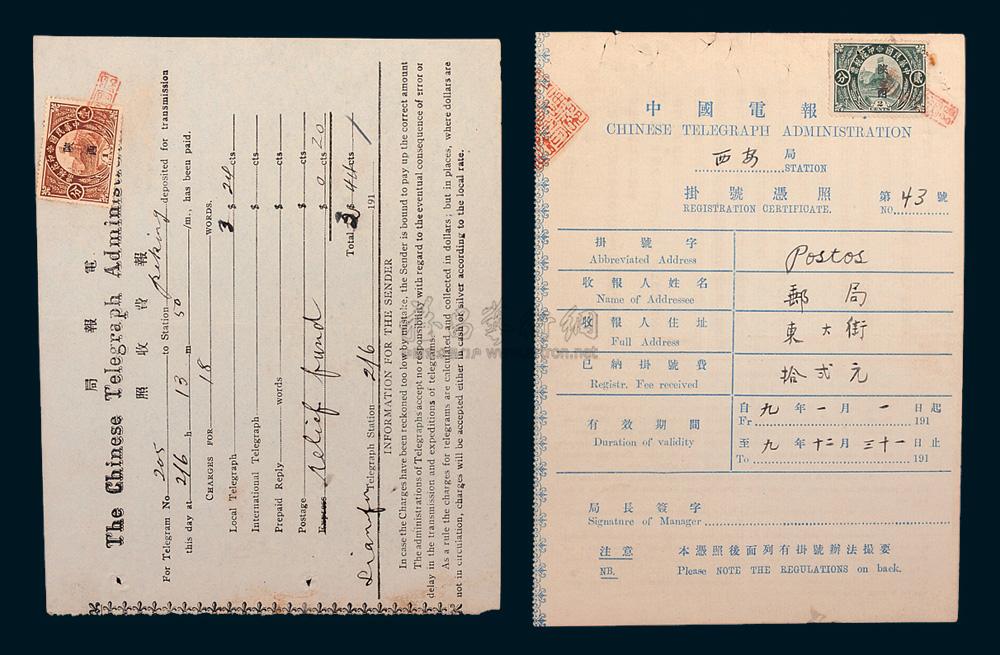 電報局
The Chinese Telegraph Administ
照收費報
For Telegram No. 205 to Station Peking deposited for transmission
this day at 2/6 h 13 m 50 /m, has been paid.
CHARGES FOR 18 WORDS.
Local Telegraph 3 $ 24 cts
International Telegraph $ cts
Prepaid Reply words $ cts
Postage $ cts
Express Relief fund $ 0 20 cts
Total $ 44 cts
Sianfu Telegraph Station 2/6 191
INFORMATION FOR THE SENDER
In case the Charges have been reckoned too low by mistake, the Sender is bound to pay up the correct amount
The administrations of Telegraphs accept no responsibility with regard to the eventual consequence of error or
delay in the transmission and expeditions of telegrams.
As a rule the charges for telegrams are calculated and collected in dollars; but in places, where dollars are
not in circulation, charges will be accepted either in cash or silver according to the local rate.
中華民國印花稅票
陝西
貳分
2 CENTS
中國電報
CHINESE TELEGRAPH ADMINISTRATION
西安局
STATION
掛號憑照 第43號
REGISTRATION CERTIFICATE. NO.
掛號字 Postos
Abbreviated Address
收報人姓名 郵局
Name of Addressee
收報人住址 東大街
Full Address
已納掛號費 拾弍元
Registr. Fee received
有效期間
Duration of validity
自九年一月一日起
Fr 191
至九年十二月三十一日止
To 191
局長簽字
Signature of Manager
注意 本憑照後面列有掛號辦法撮要
NB. Please NOTE THE REGULATIONS on back.